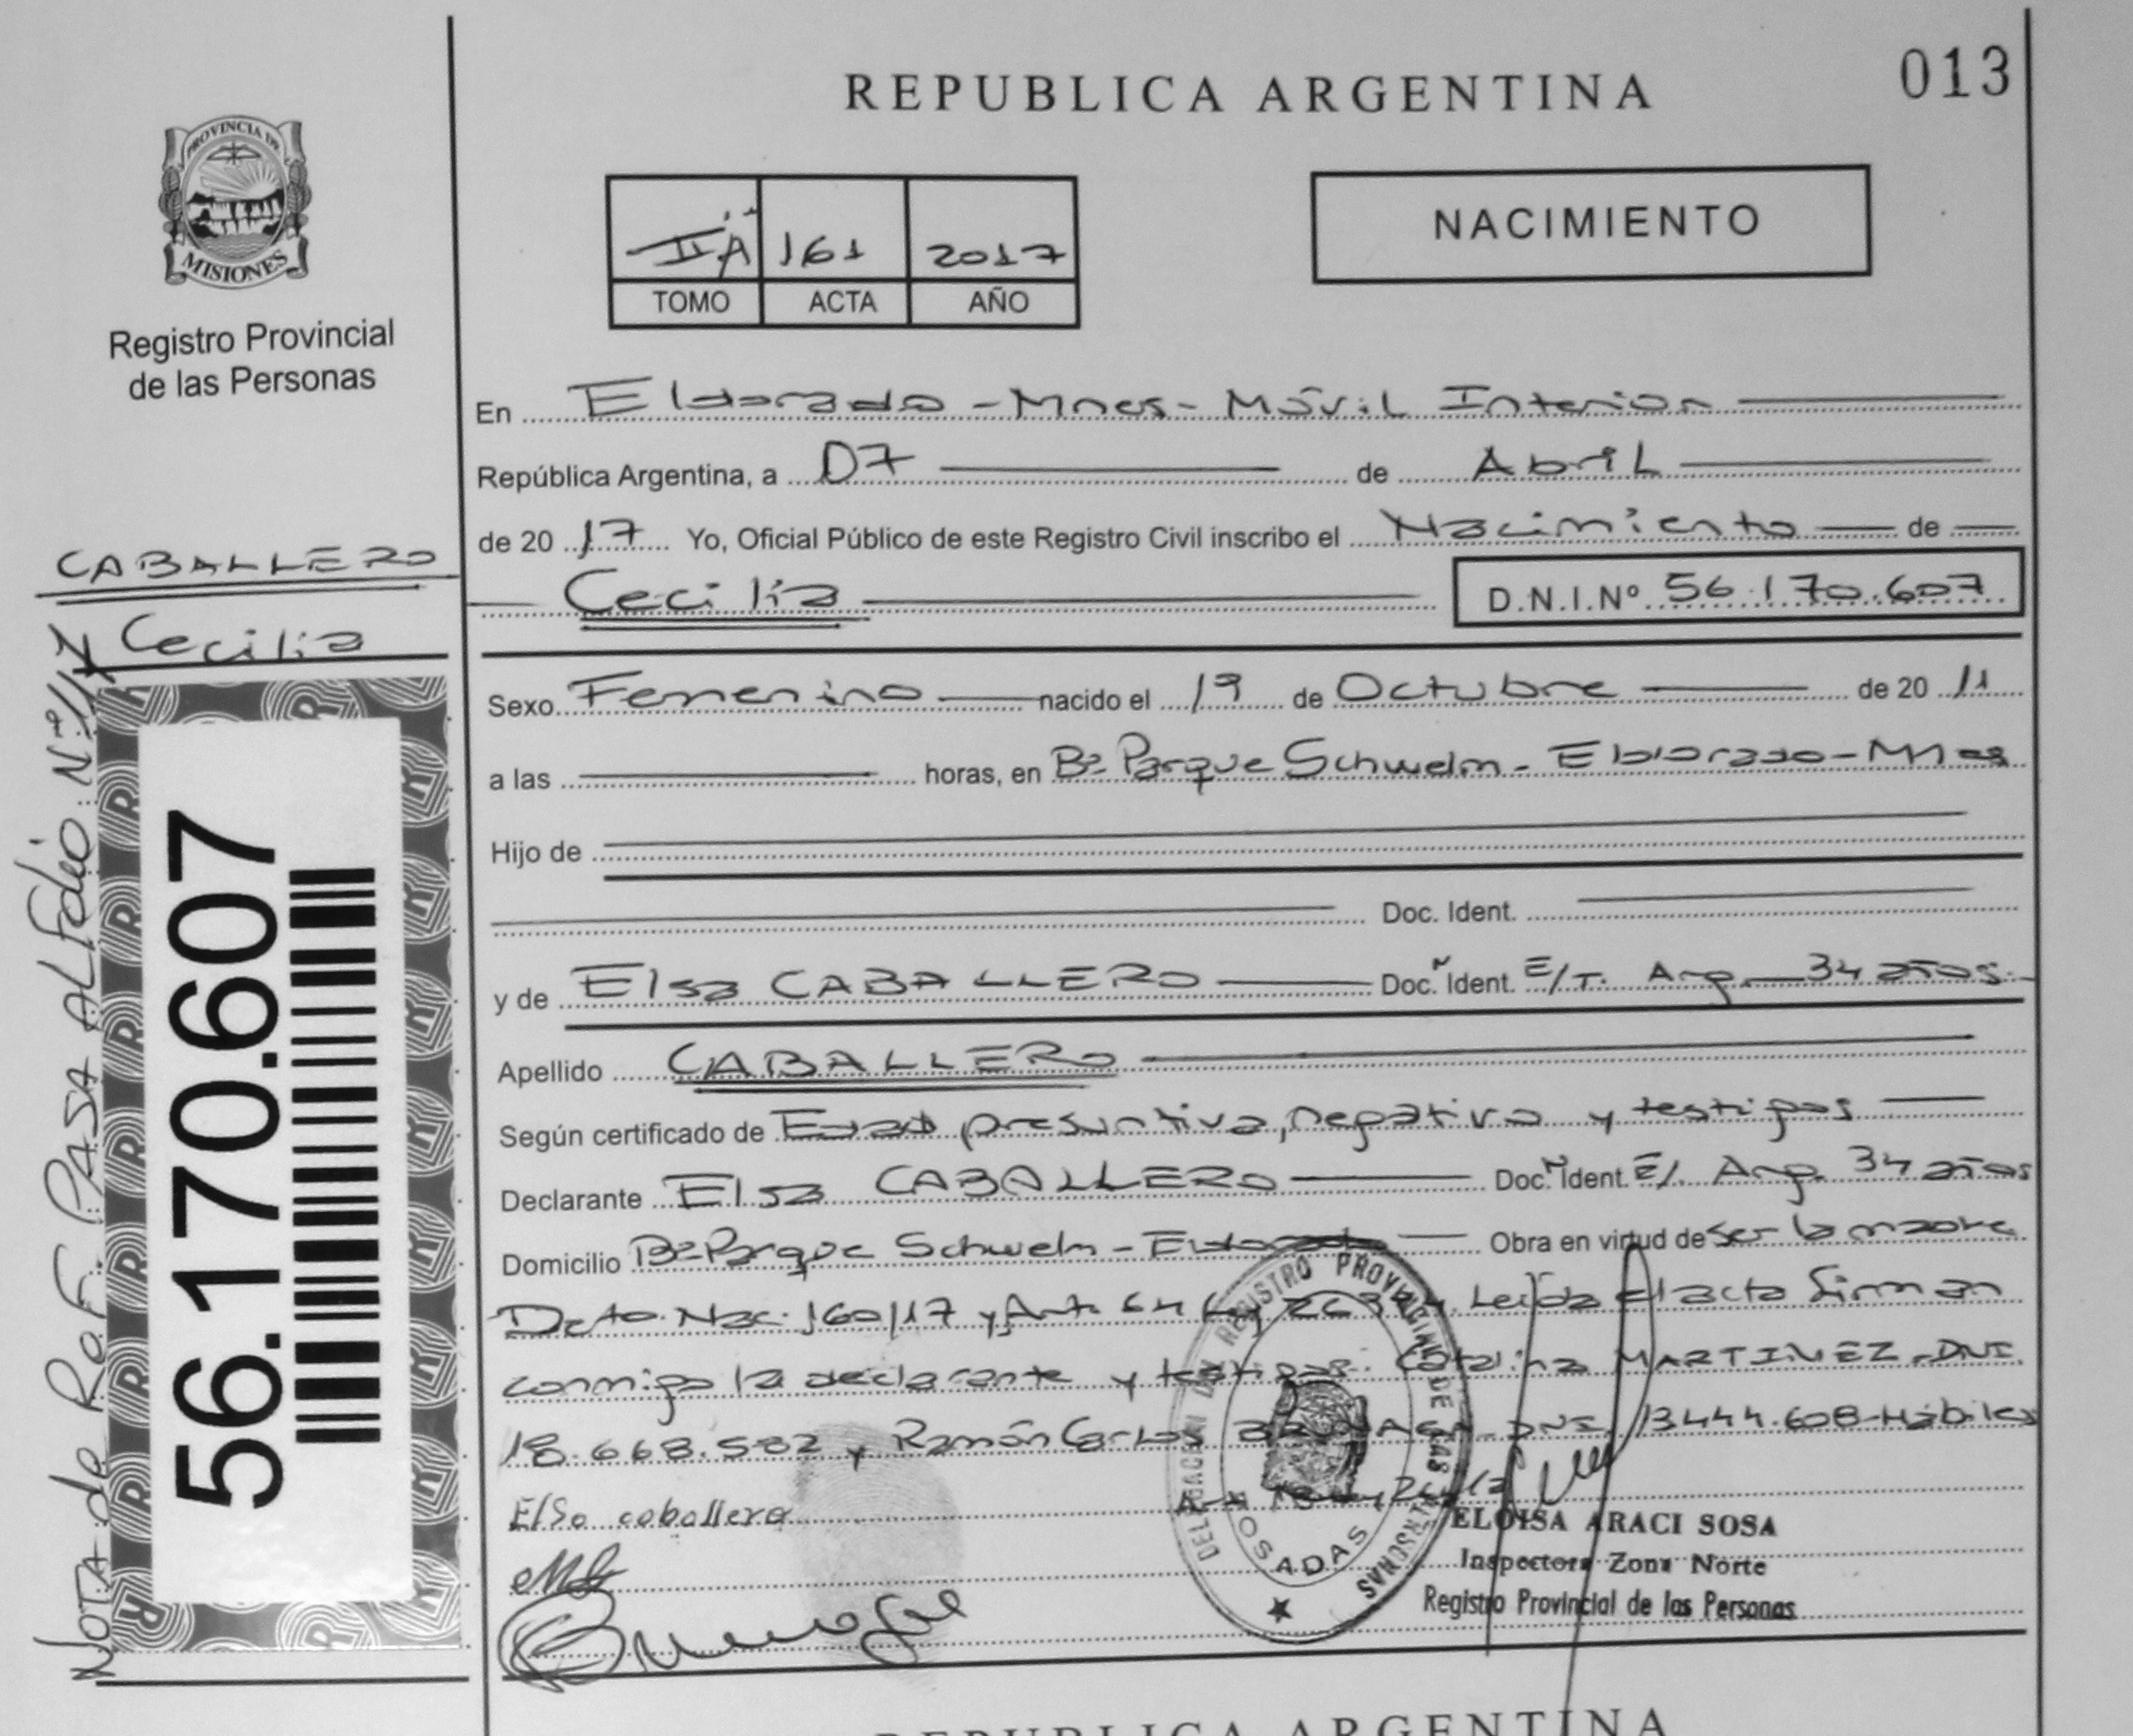 REPUBLICA ARGENTINA
013
PROVINCIA DE
MISIONES
Registro Provincial
de las Personas
II A 161 2017
TOMO ACTA AÑO
NACIMIENTO
En Eldorado - Mnes - Móvil Interior
República Argentina, a 07 de Abril
de 20 17 Yo, Oficial Público de este Registro Civil inscribo el Nacimiento de
Cecilia D.N.I.Nº 56.170.607
CABALLERO
Cecilia
Sexo Femenino nacido el 19 de Octubre de 20 11
a las horas, en Bº Parque Schwelm - Eldorado - Mnes
Hijo de
Doc. Ident.
y de Elsa CABALLERO Doc. Ident. E/T. Arg. 34 años.
Apellido CABALLERO
Según certificado de Edad presuntiva, negativo y testigos
Declarante Elsa CABALLERO Doc. Ident. E/. Arg. 34 años
Domicilio Bº Parque Schwelm - Eldorado Obra en virtud de ser la madre
Dcto. Nac. 160/17 y Art. 64 Ley Leída el acta firman
conmigo la declarante y testigos: Catalina MARTINEZ. DNI
18.668.582 y Ramón Carlos DNI. 13444.608-Hábiles
Elsa caballero
DELEGACION DEL REGISTRO PROVINCIAL DE LAS PERSONAS
POSADAS
ELOISA ARACI SOSA
Inspectora Zona Norte
Registro Provincial de las Personas
56.170.607
Nota de R.O.F. PASA AL Folio Nº
REPUBLICA ARGENTINA